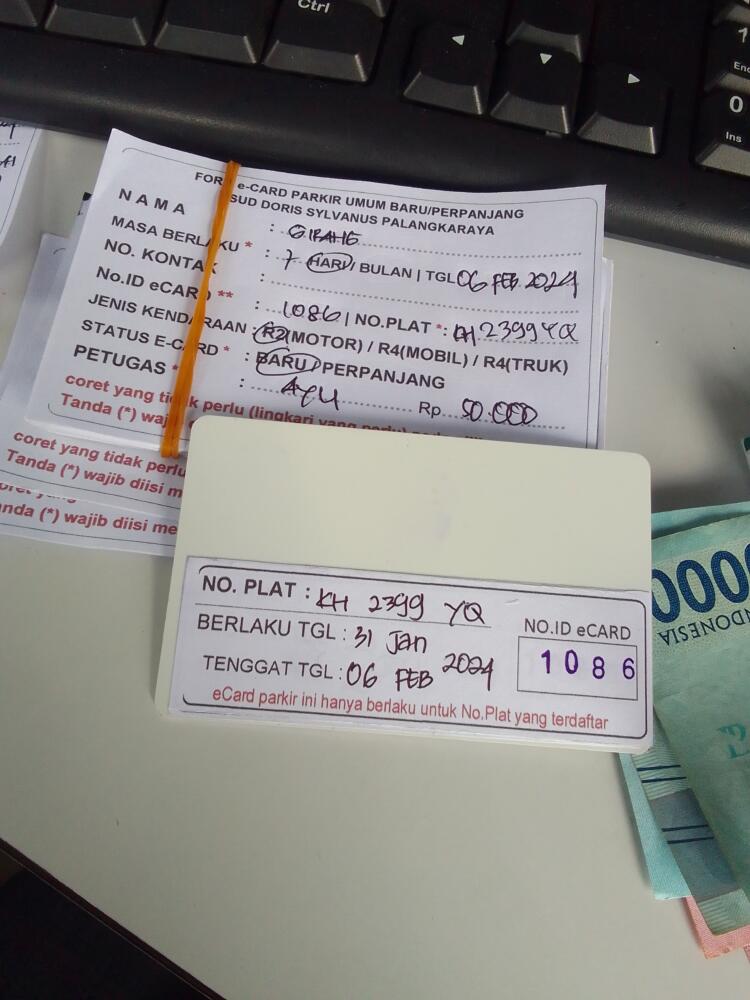 Ctrl
0
Ins
FOR e-CARD PARKIR UMUM BARU/PERPANJANG
SUD DORIS SYLVANUS PALANGKARAYA
NAMA :
MASA BERLAKU * : 7 HARI / BULAN | TGL 06 FEB 2024
NO. KONTAK :
No.ID eCARD ** : 1086 | NO.PLAT * : KH 2399 YQ
JENIS KENDARAAN : R2(MOTOR) / R4(MOBIL) / R4(TRUK)
STATUS E-CARD * : BARU / PERPANJANG
PETUGAS * : AYU Rp 50.000
coret yang tidak perlu (lingkari yang perlu)
Tanda (*) waj
coret yang tidak perlu
Tanda (*) wajib diisi m
anda (*) wajib diisi me
NO. PLAT : KH 2399 YQ
BERLAKU TGL : 31 Jan
TENGGAT TGL : 06 FEB 2024
NO.ID eCARD
1086
eCard parkir ini hanya berlaku untuk No.Plat yang terdaftar
000
INDONESIA